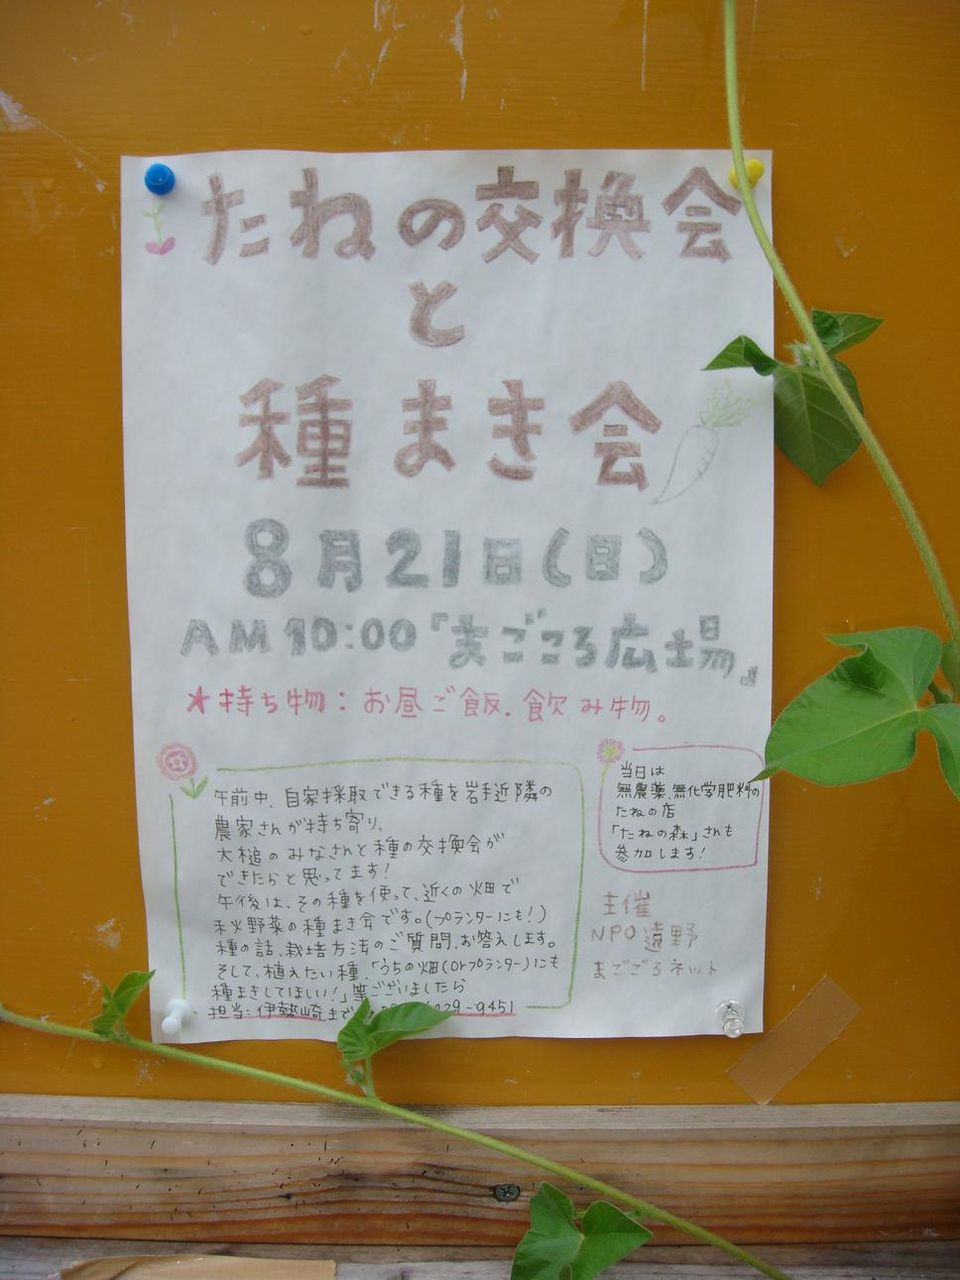 たねの交換会
と
種まき会
8月21日(日)
AM10:00『まごころ広場』
★持ち物:お昼ご飯.飲み物。
午前中、自家採取できる種を岩手近隣の
農家さんが持ち寄り、
大槌のみなさんと種の交換会が
できたらと思ってます!
午後は、その種を使って、近くの畑で
秋野菜の種まき会です。(プランターにも!)
種の話、栽培方法のご質問、お答えします。
そして、植えたい種、「うちの畑(orプランター)にも
種まきしてほしい!」等ございましたら
担当:伊勢崎まで 29-9451
当日は
無農薬、無化学肥料の
たねの店
「たねの森」さんも
参加します!
主催
NPO遠野
まごころネット